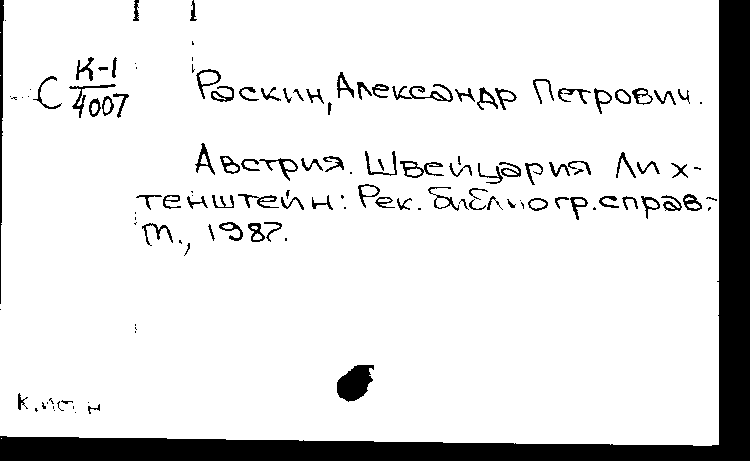 С К-1
4007
Раскин, Александр Петрович.
Австрия. Швейцария Лих-
тенштейн: Рек. библиогр. справ.-
М., 1987.